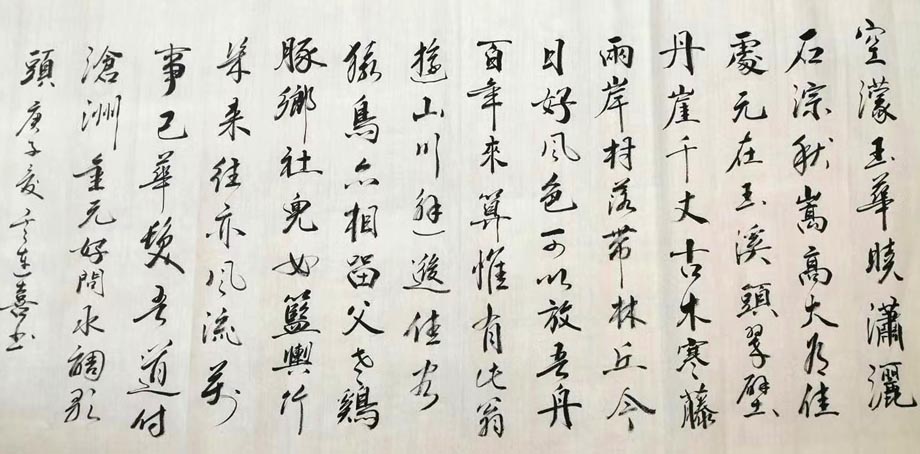 空濛玉華曉瀟灑
石淙秋嵩高大有佳
處元在玉溪頭翠壁
丹崖千丈古木寒藤
兩岸村落帶林丘今
日好風色可以放吾舟
百年來算惟有此翁
遊山川邂逅佳客
猿鳥亦相留父老鷄
豚鄉社兒女籃輿竹
几来往亦風流万
事已華髮吾道付
滄洲金元好問水調歌
頭庚子夏連喜书